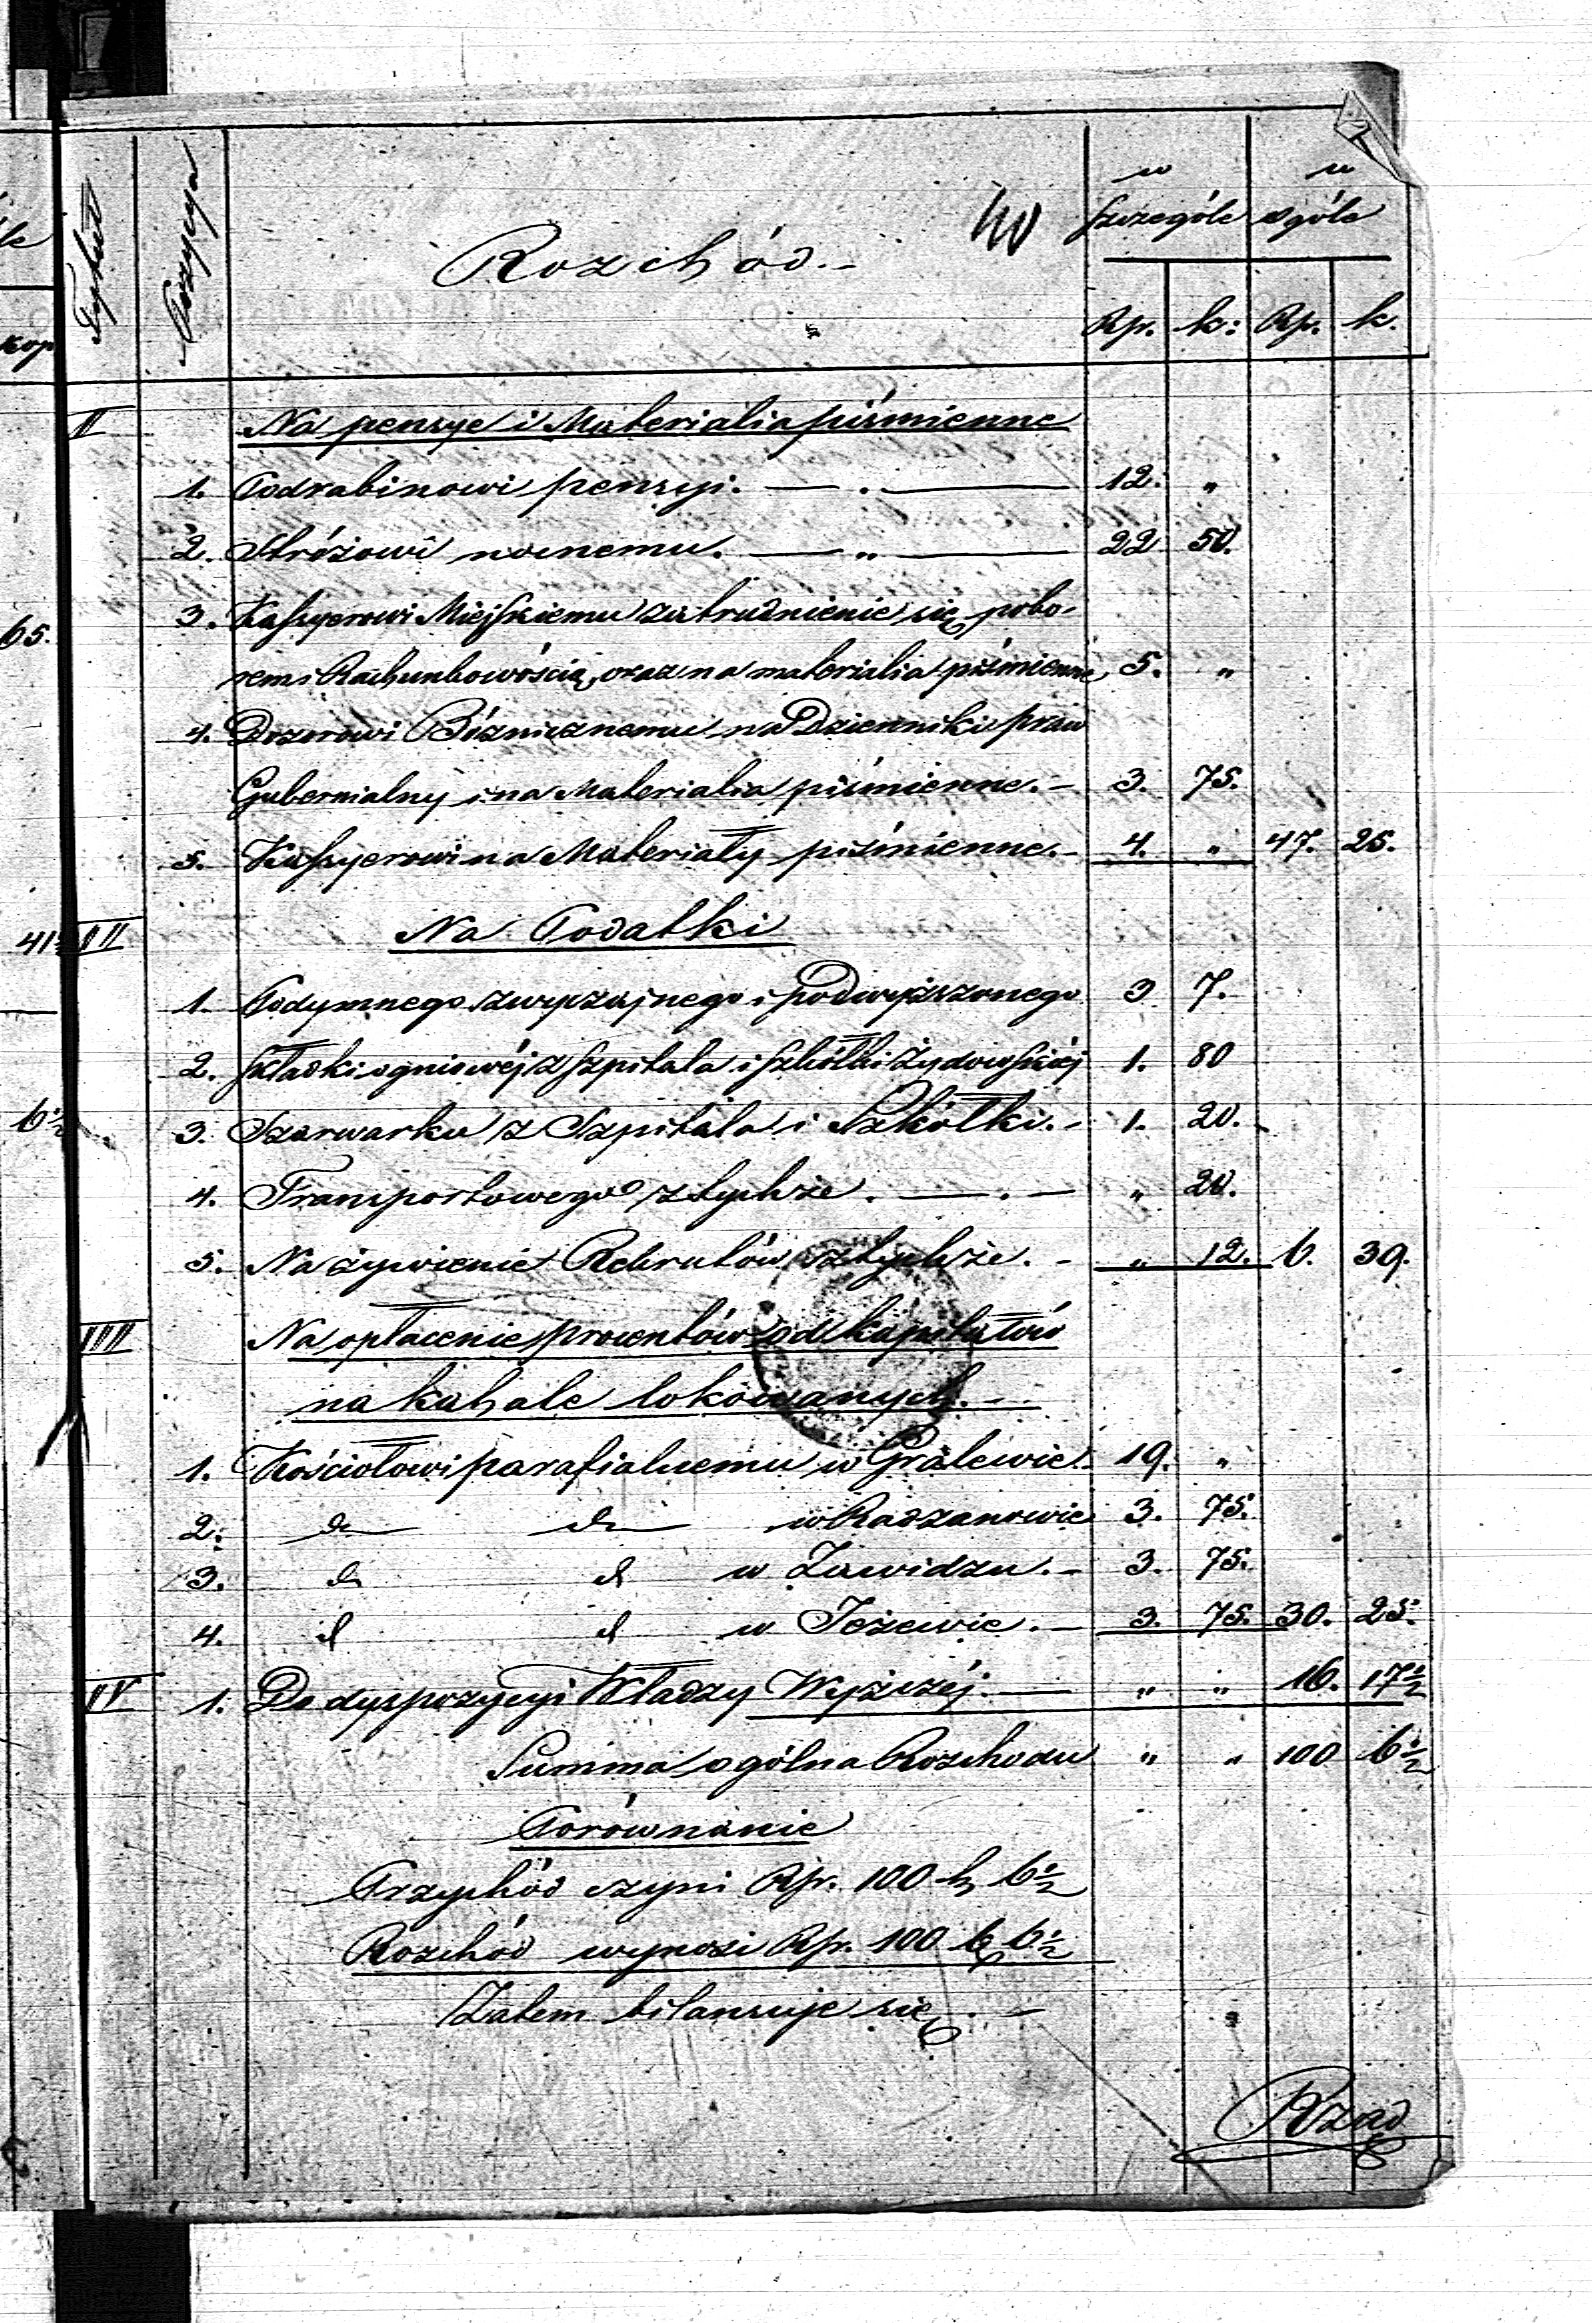 le
kop
65.
41½
6½
Tytuł Pozycya Rozchód.- 40 w szczególe w ogóle
Rp. k: Rp. k.
I Na pensye i Materialia piśmienne
1. Podrabinowi pensyi. — . — 12. "
2. Stróżowi nocnemu. — " — 22 50.
3. Kassyerowi Miejskiemu zatrudnienie się pobo-
rem i Rachunkowością, oraz na materialia piśmienne 5. "
4. Dozorowi Bóżnicznemu na Dzienniki praw
Gubernialny i na Materialia piśmienne. - 3. 75.
5. Kassyerowi na Materiały piśmienne. - 4. " 47. 25.
II Na Podatki
1. Podymnego zwyczajnego i podwyższonego 3 7.
2. Składki ogniowéj z Szpitala i Szkółki Żydowskiéj 1. 80
3. Szarwarku z Szpitala i Szkółki. - 1. 20.
4. Transportowego z tychże. — . — " 20.
5. Na żywienie Rekrutów z tychże. - " 12. 6. 39.
III Na opłacenie procentów od kapitałów
na kahale lokowanych. -
1. Kościołowi parafialnemu w Gralewie 19. "
2. do do w Radzanowie 3. 75.
3. do do w Zawidzu. - 3. 75.
4. do do w Jeżewie. - 3. 75. 30. 25.
IV 1. Do dyspozycyi Władzy Wyższéj. — " " 16. 17½
Summa ogólna Rozchodu " " 100 6½
Porównanie
Przychód czyni Rp. 100 k 6½
Rozchód wynosi Rp. 100 k 6½
Zatem bilansuje się. —
Rząd